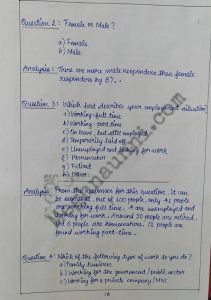 Question 2: Female or Male?
a) Female
b) Male
Analysis: There are more male responders than female
responders by 8%.
Question 3: Which best describes your employment situation?
a) Working-full time
b) Working-part time
c) On leave, but still employed
d) Temporarily laid off
e) Unemployed and looking for work
f) Homemaker
g) Retired
h) Other
Analysis: From the responses for this question, it can
be seen that, out of 100 people, only 42 people
are working full time. 4 are unemployed and
looking for work. Around 30 people are retired.
6 people are homemakers. 12 people are
found working part time.
Question 4: Which of the following type of work do you do?
a) Family business
b) Working for the government/public sector
c) Working for a private company/MNC
18